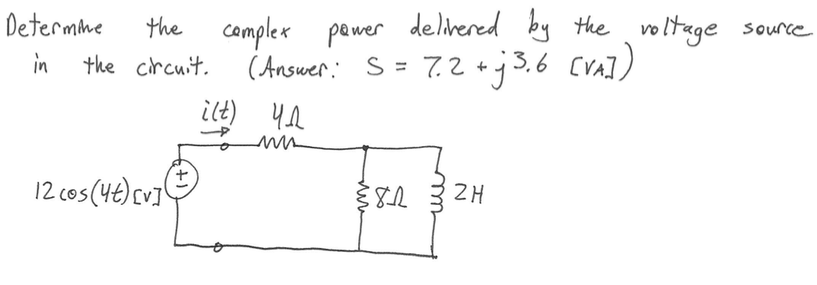 Determine the complex power delivered by the voltage source
in the circuit. (Answer: S = 7.2 + j3.6 [VA])
i(t) 4Ω
12 cos(4t) [V]
+
8Ω
2H